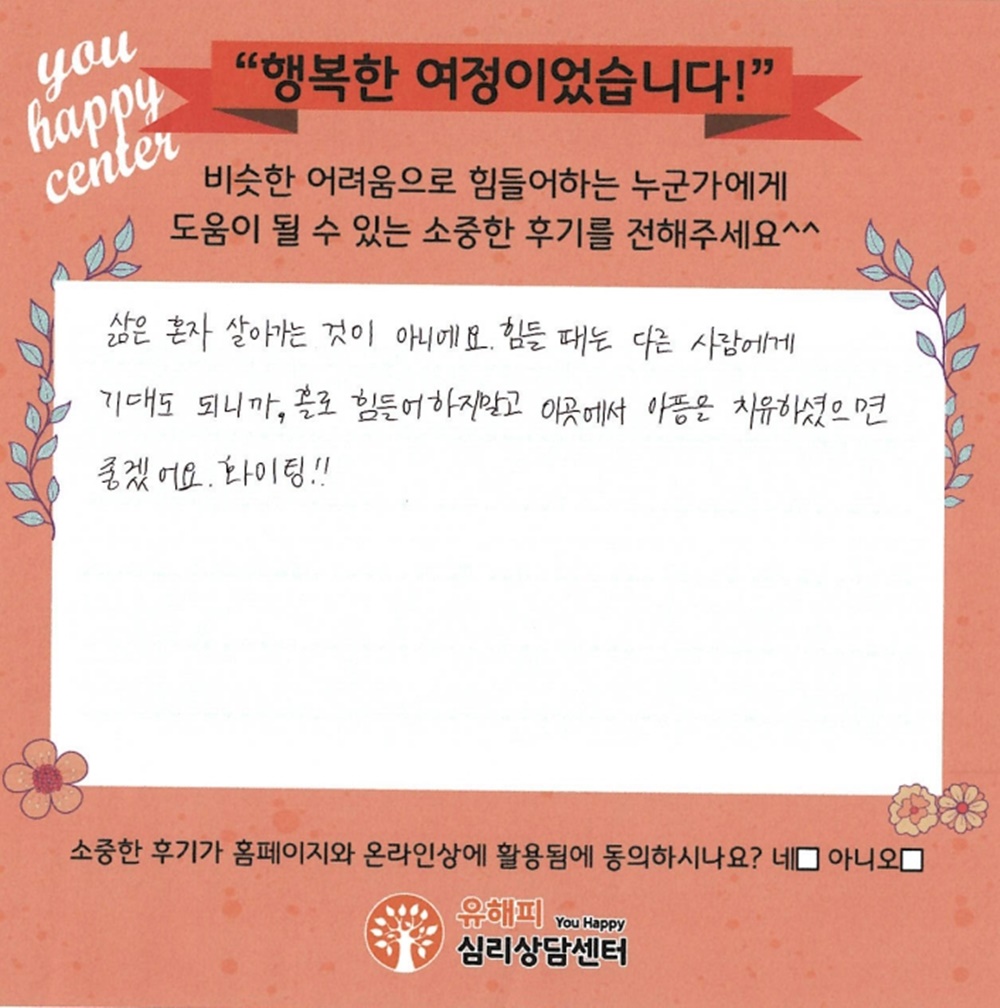 you
happy
center
“행복한 여정이었습니다!”
비슷한 어려움으로 힘들어하는 누군가에게
도움이 될 수 있는 소중한 후기를 전해주세요^^
삶은 혼자 살아가는 것이 아니에요. 힘들 때는 다른 사람에게
기대도 되니까, 홀로 힘들어하지말고 이곳에서 아픔을 치유하셨으면
좋겠어요. 화이팅!!
소중한 후기가 홈페이지와 온라인상에 활용됨에 동의하시나요? 네□ 아니오□
유해피 You Happy
심리상담센터